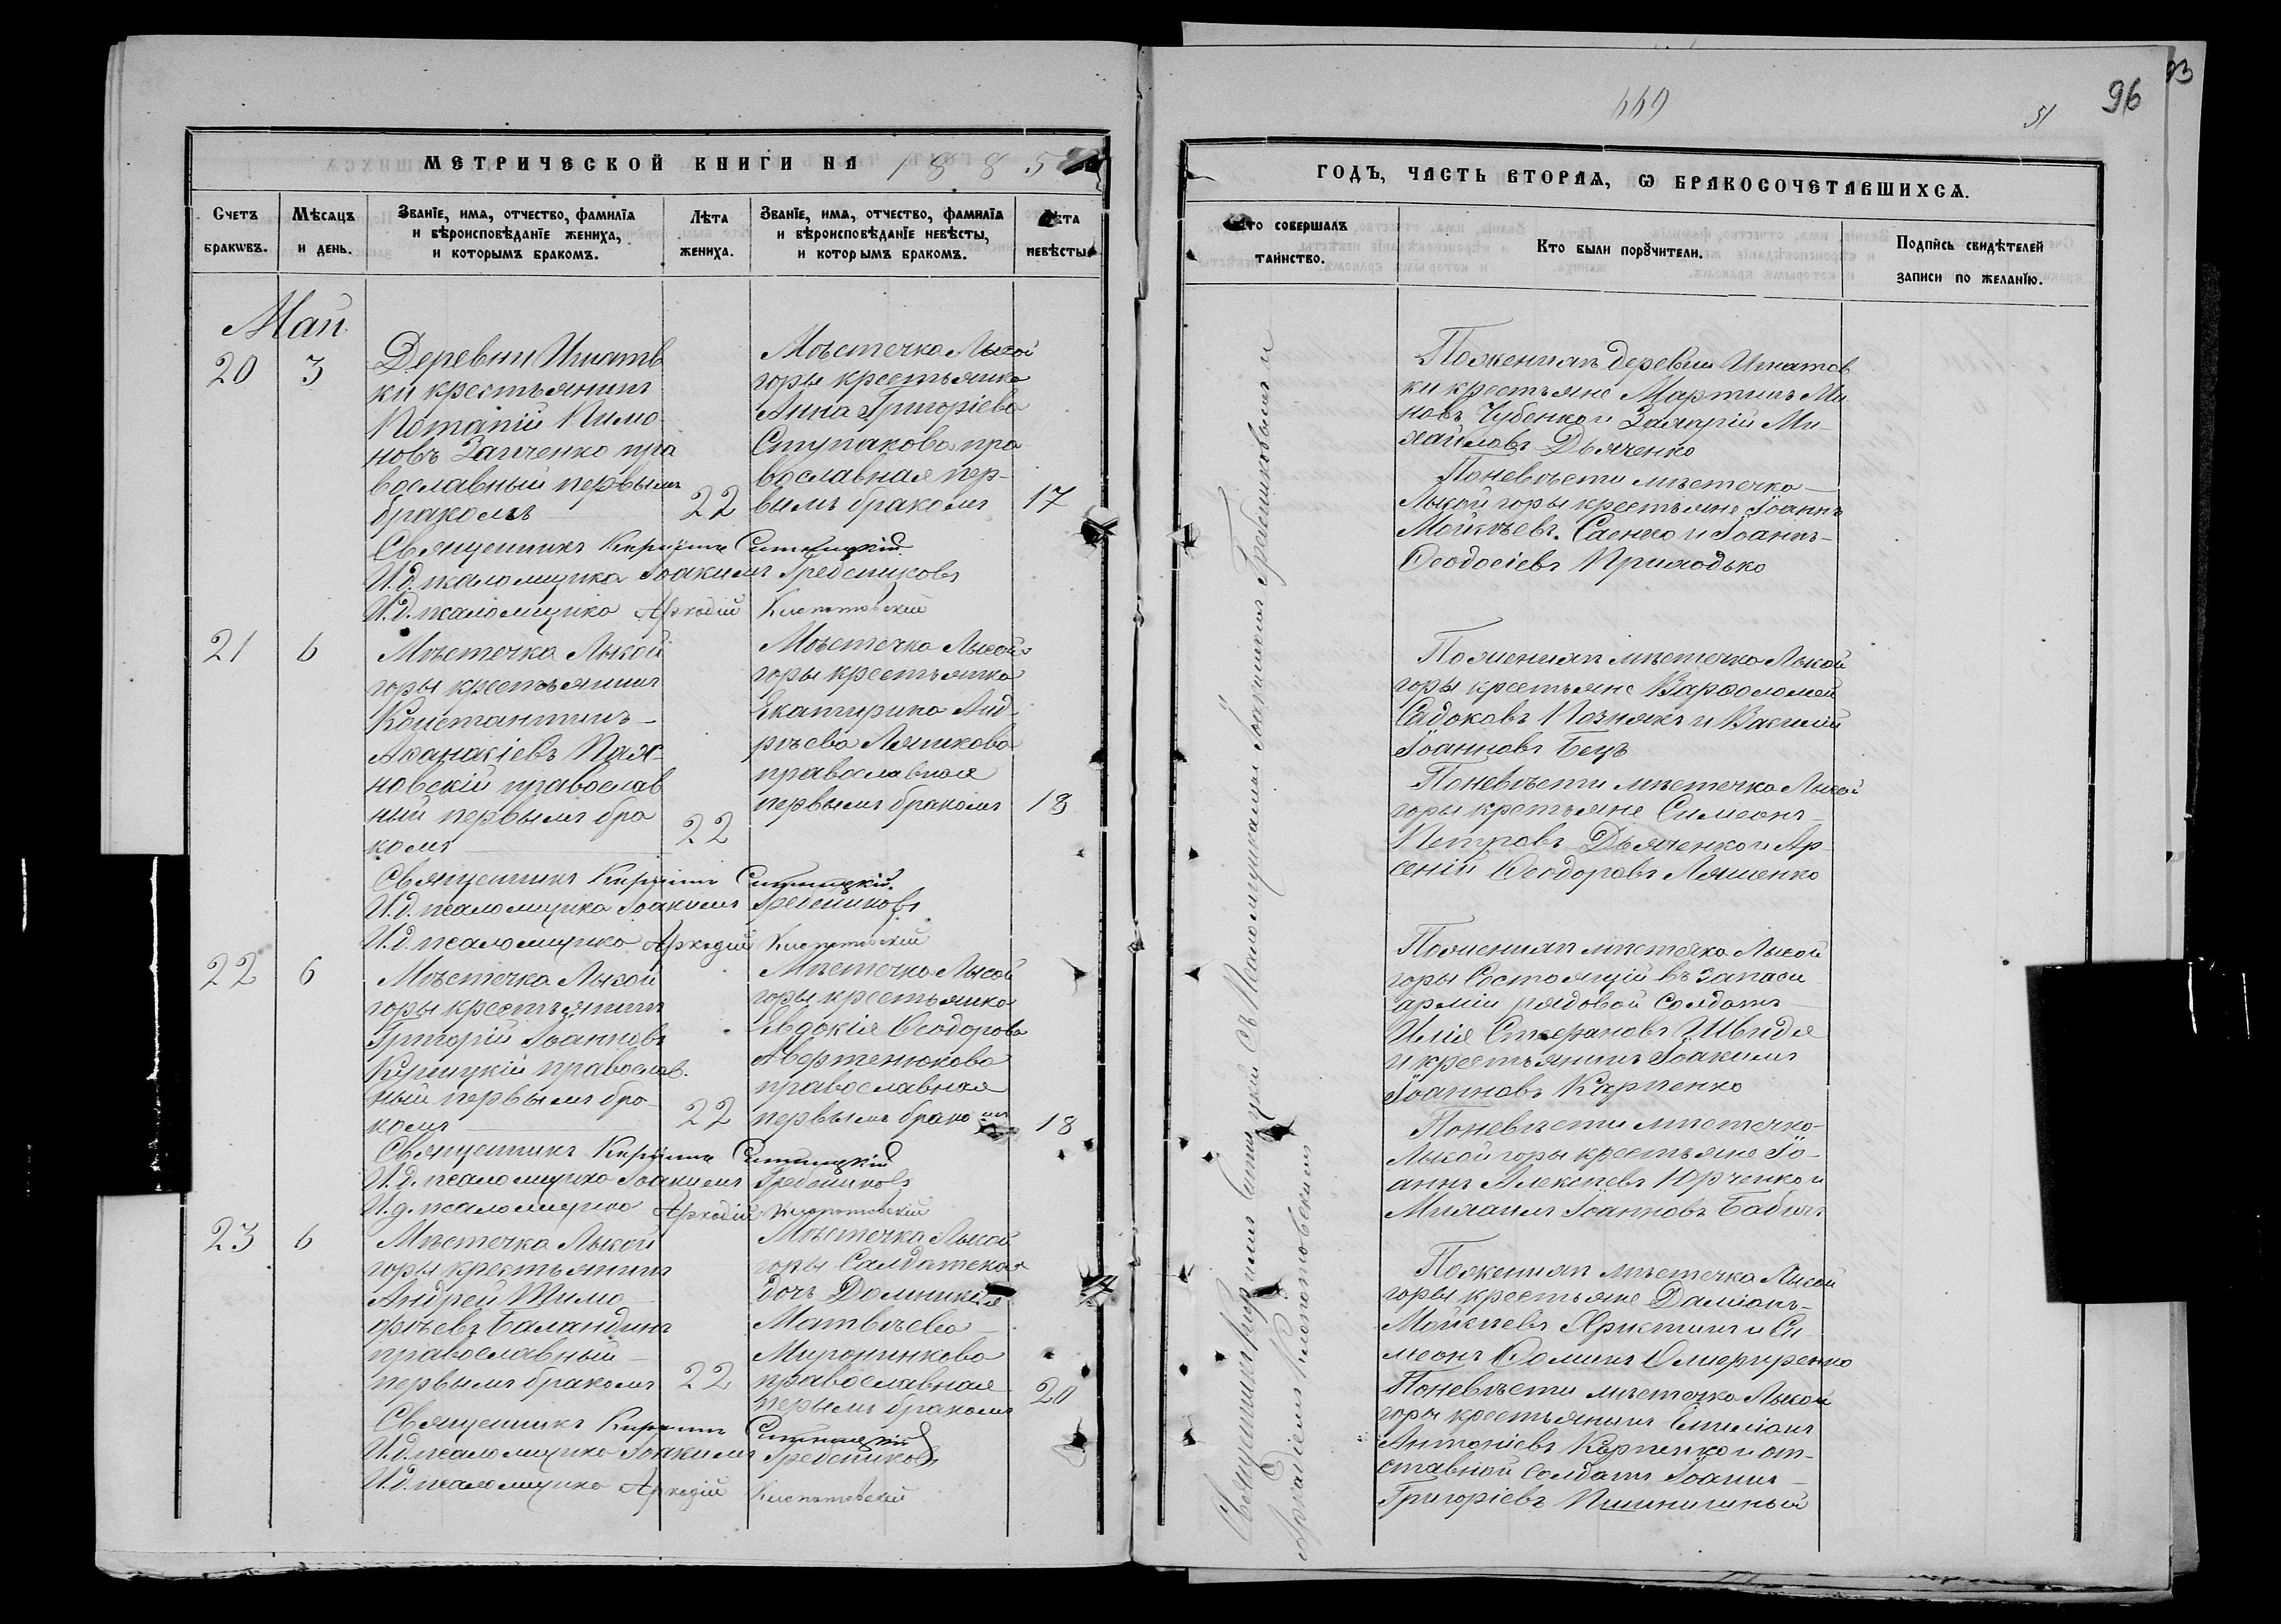 МЕТРИЧЕСКОЙ КНИГИ НА 1885
Счетъ браковъ.
Мѣсяцъ и день.
Званїе, имя, отчество, фамилїя и вѣроисповѣданїе жениха, и которымъ бракомъ.
Лѣта жениха.
Званїе, имя, отчество, фамилїя и вѣроисповѣданїе невѣсты, и которымъ бракомъ.
Лѣта невѣсты.
Май
20 3
Деревни Игнатов
ки крестьянинъ
Потапій Пимо
новъ Заиченко пра
вославный первымъ
бракомъ 22
Мѣстечка Лысой
горы крестьянка
Анна Григоріева
Ступакова пра
вославная пер-
вымъ бракомъ 17
Священникъ Кирилъ
И.д. псаломщика Іоакимъ Гребениковъ
И.д. псаломщика Аркадій
21 6
Мѣстечка Лысой
горы крестьянинъ
Константинъ
Аѳанасіевъ Пах
новскій православ
ный первымъ бра
комъ 22
Мѣстечка Лысой
горы крестьянка
Екатирина Анд
рѣева Ляшкова
православная
первымъ бракомъ 18
Священникъ Кирилъ
И.д. псаломщика Іоакимъ Гребениковъ
И.д. псаломщика Аркадій
22 6
Мѣстечка Лысой
горы крестьянинъ
Григорій Іоанновъ
православ.
ный первымъ бра
комъ 22
Мѣстечка Лысой
горы крестьянка
Евдокія Ѳеодорова
православная
первымъ бракомъ 18
Священникъ Кирилъ
И.д. псаломщика Іоакимъ Гребениковъ
И.д. псаломщика Аркадій
23 6
Мѣстечка Лысой
горы крестьянинъ
Андрей Тимо
фѣевъ Баландинъ
православный
первымъ бракомъ 22
Мѣстечка Лысой
горы Салдатская
дочь Домникія
Матвѣева
Миронинкова
православная
первымъ бракомъ 20
Священникъ Кирилъ
И.д. псаломщика Іоакимъ Гребениковъ
И.д. псаломщика Аркадій
93
96
51
ГОДЪ, ЧАСТЬ ВТОРАЯ, Ѡ БРАКОСОЧЕТАВШИХСЯ.
Кто совершалъ таинство.
Кто были порꙋчители.
Подпись свидѣтелей записи по желанїю.
Священникъ съ Псаломщиками Іоакимомъ Гребениковымъ и
Аркадіемъ
По женихѣ деревни Игнатов
ки крестьяне Мартинъ Ми
новъ Чубенко и Захарій Ми-
хайловъ Дьяченко
По невѣсти мѣстечка
Лысой горы крестьяне Іоаннъ
Мойсѣевъ Саенко и Іоаннъ
Ѳеодосіевъ Приходько
По женихѣ мѣстечка Лысой
горы крестьяне Варѳоломей
Садоковъ Познякъ и Василій
Іоанновъ Бецъ
По невѣсти мѣстечка Лысой
горы кретьяне Симеонъ
Петровъ Дьяченко и Ар
сеній Ѳеодоровъ Ляшенко
По женихѣ мѣстечка Лысой
горы Состоящій въ запаси
арміи рядовой Солдатъ
Илія Стефановъ Швидя
и крестьянинъ Іоакимъ
Іоанновъ Карпенко
По невѣсти мѣстечка
Лысой горы крестьяне Іо-
аннъ Алексѣевъ Юрченко и
Михаилъ Іоанновъ Бабичъ
По женихѣ мѣстечка Лысой
горы крестьяне Даміанъ
Мойсѣевъ и Си
меонъ Ѳоминъ
По невѣсти мѣстечка Лысой
горы крестьянинъ Емиліанъ
Антоніевъ Карпенко и от-
ставной солдатъ Іоаннъ
Григоріевъ Пшиничный